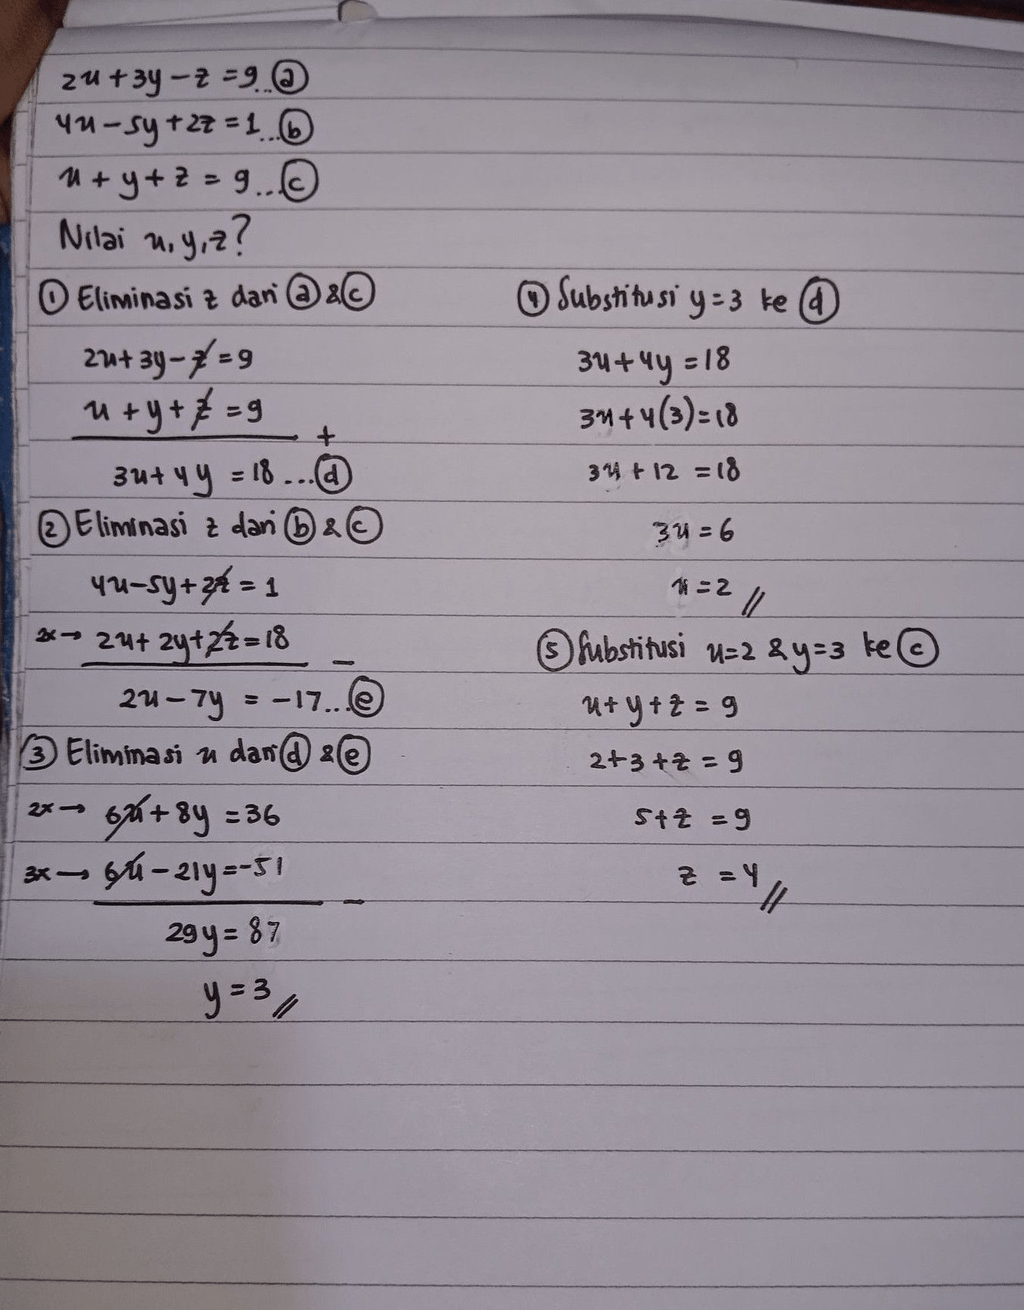 2x + 3y - z = 9 ... ⓐ
4x - 5y + 2z = 1 ... ⓑ
x + y + z = 9 ... ⓒ
Nilai x, y, z?
① Eliminasi z dari ⓐ & ⓒ
2x + 3y - z = 9
x + y + z = 9
+
3x + 4y = 18 ... ⓓ
② Eliminasi z dari ⓑ & ⓒ
4x - 5y + 2z = 1
2x → 2x + 2y + 2z = 18
-
2x - 7y = -17 ... ⓔ
③ Eliminasi x dari ⓓ & ⓔ
2x → 6x + 8y = 36
3x → 6x - 21y = -51
-
29y = 87
y = 3 //
④ Substitusi y = 3 ke ⓓ
3x + 4y = 18
3x + 4(3) = 18
3x + 12 = 18
3x = 6
x = 2 //
⑤ Substitusi x = 2 & y = 3 ke ⓒ
x + y + z = 9
2 + 3 + z = 9
5 + z = 9
z = 4 //